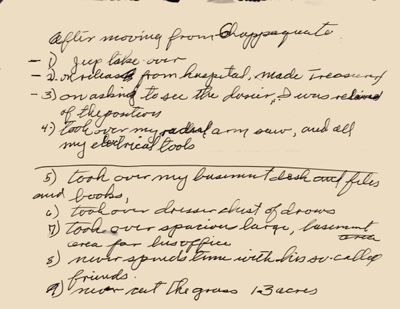 After moving from Chappaquate
- 1) Jup take over
- 2. on release from hospital, made Treasury
- 3) on asking to see the dosier, I was relieved
of the position
4.) took over my radial arm saw, and all
my electrical tools
5) took over my basement desk and files
and books,
6) took over dresser chest of drows
7) took over spacious large, basement
area for his office
8) never spends time with his so-called
friends.
9) never cut the grass 1-3 acres